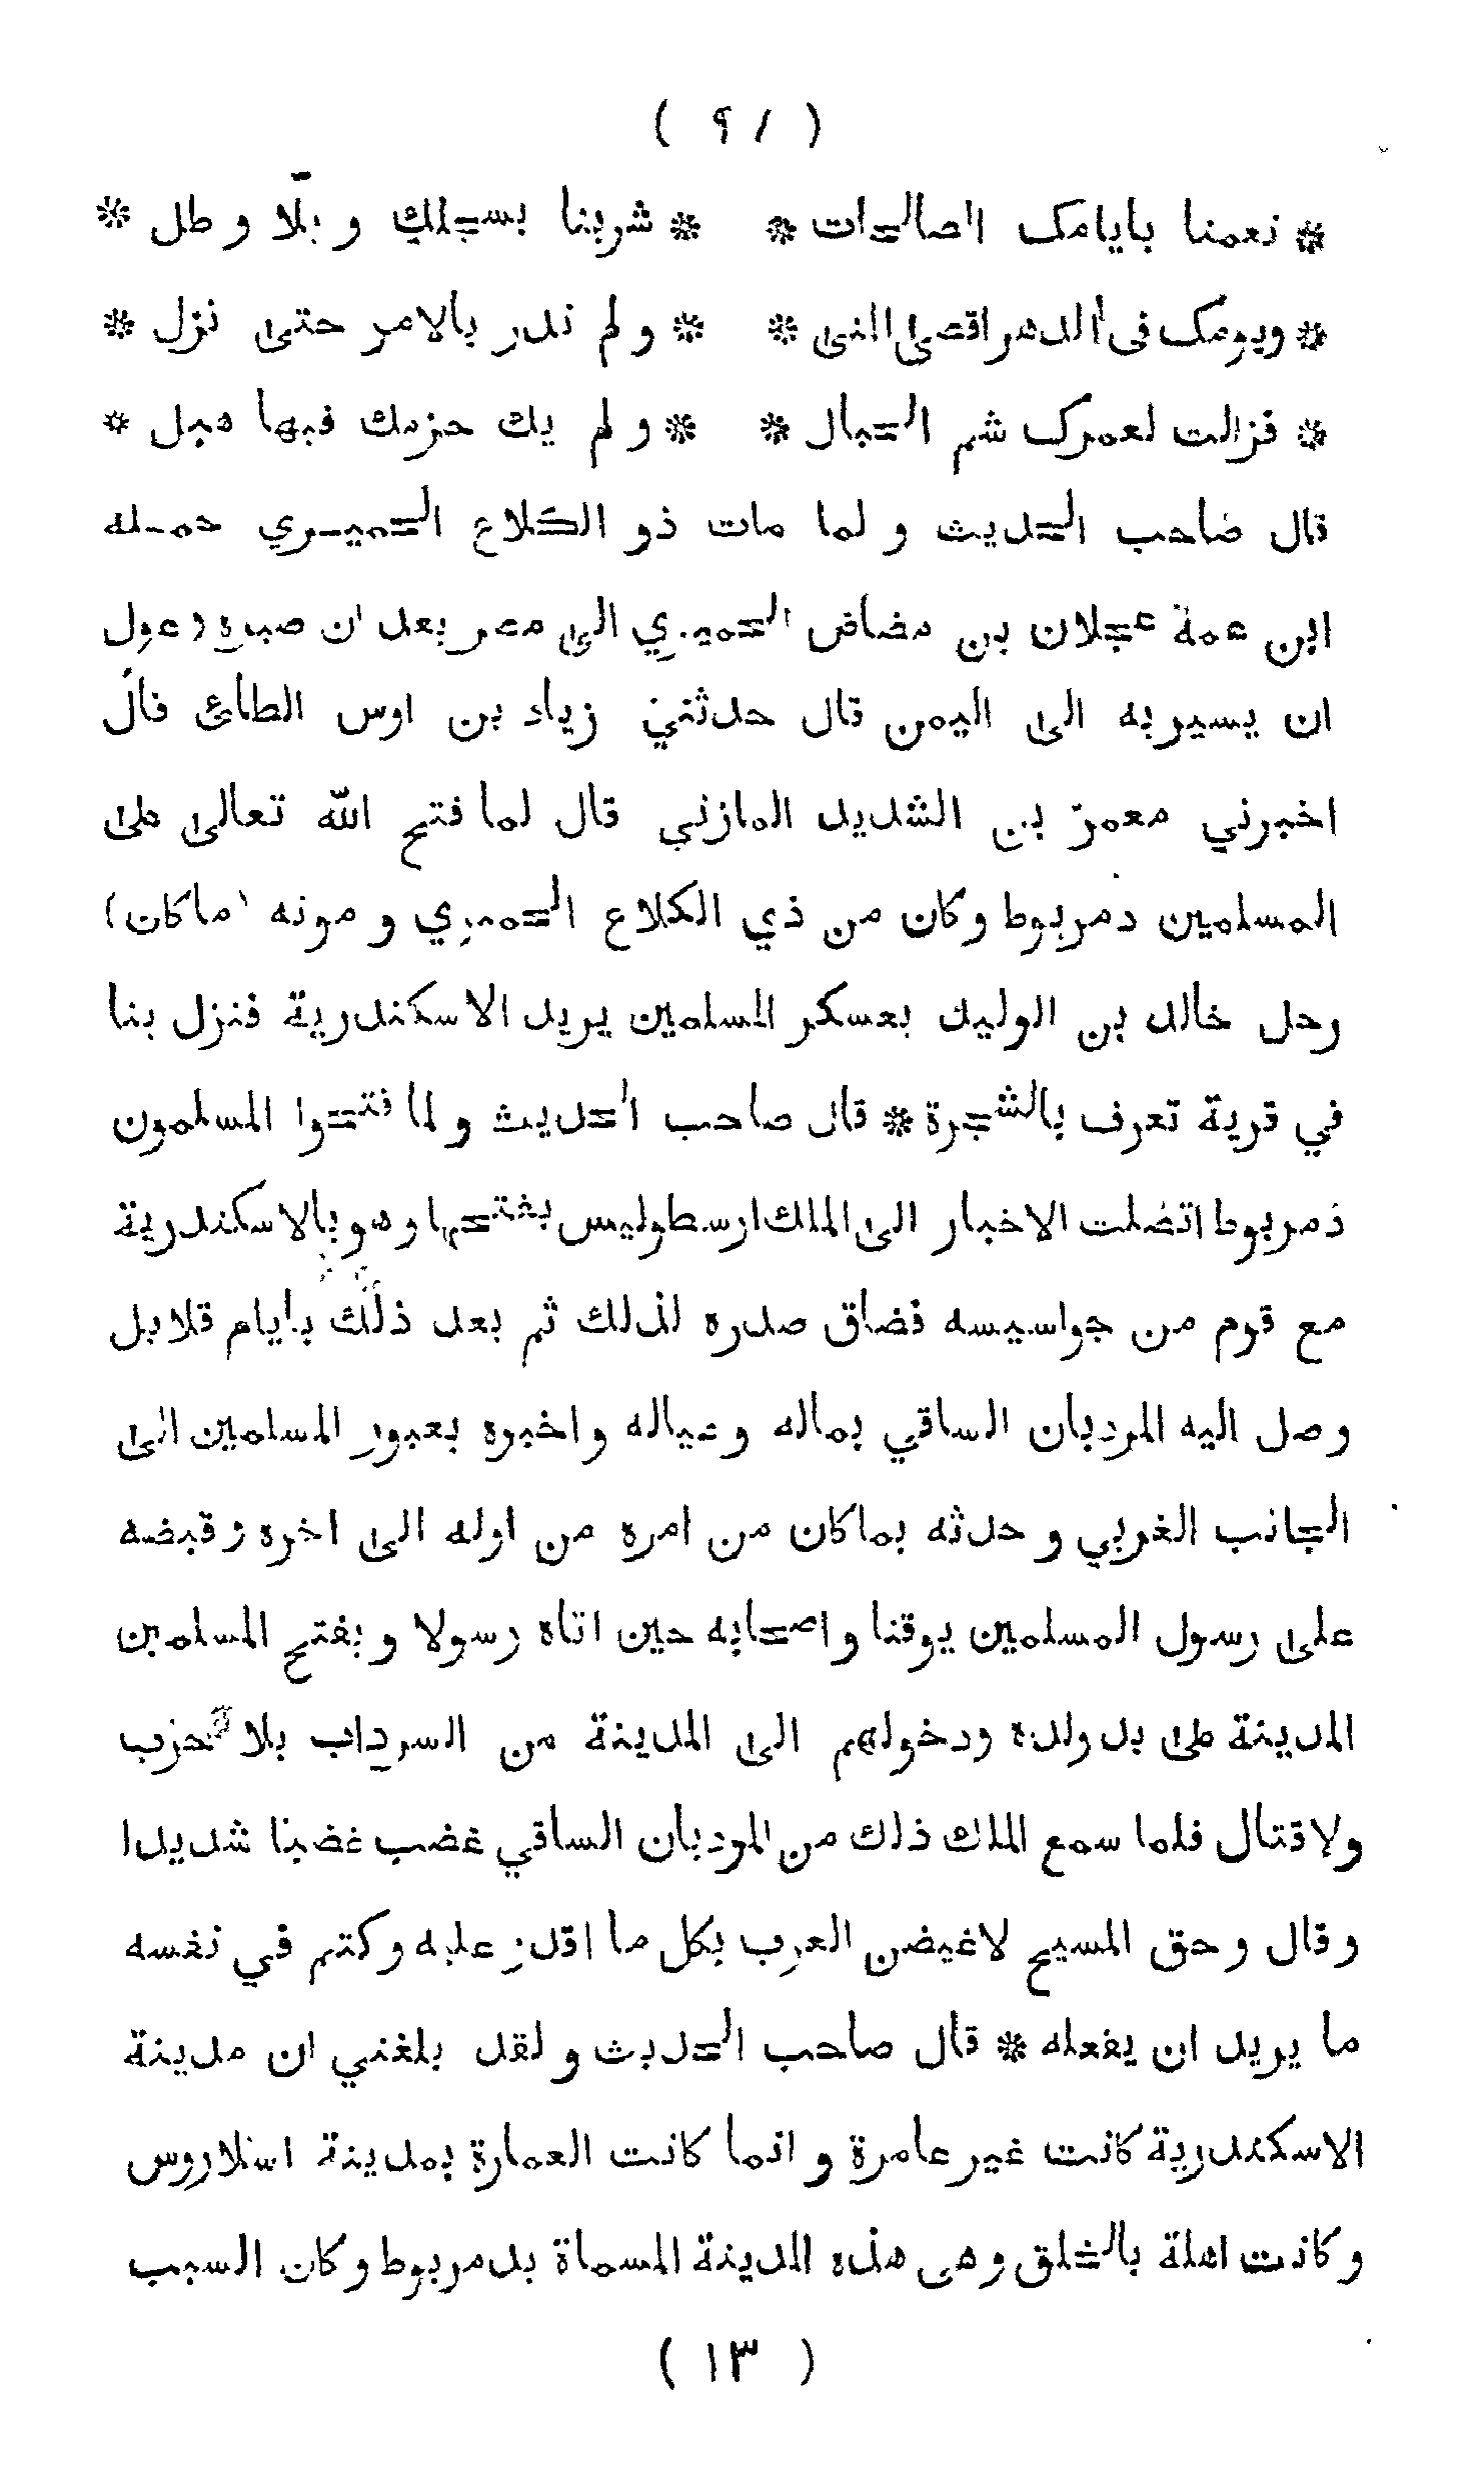 ( ٩١ )
* نعمنا بايامك الصالحات * * شربنا بسجلك وبلّا وطل *
* ويومك فى الدهر اقصى المنى * * ولم ندر بالامر حتى نزل *
* فزالت لعمرك شم الجبال * * ولم يك حزمك فيها هبل *
قال صاحب الحديث ولما مات ذو الكلاع الحميـري حمـله
ابن عمة عجلان بن مضاض الحميري الى مصر بعد ان صبره وعول
ان يسير به الى اليمن قال حدثني زياد بن اوس الطائي قال
اخبرني معمر بن الشديد المازني قال لما فتح الله تعالى على
المسلمين دمربوط وكان من ذي الكلاع الحميري وموته (ماكان)
رحل خالد بن الوليد بعسكر المسلمين يريد الاسكندرية فنزل بنا
في قرية تعرف بالشجرة * قال صاحب الحديث ولما فتحوا المسلمون
دمربوط اتصلت الاخبار الى الملك ارسطوليس بفتحها وهو بالاسكندرية
مع قوم من جواسيسه فضاق صدره لذلك ثم بعد ذلك بايام قلايل
وصل اليه المردبان الساقي بماله وعياله واخبره بعبور المسلمين الى
الجانب الغربي وحدثه بماكان من امره من اوله الى اخره وقبضه
على رسول المسلمين يوقنا واصحابه حين اتاه رسولا وبفتح المسلمين
المدينة على يد ولده ودخولهم الى المدينة من السرداب بلا حرب
ولاقتال فلما سمع الملك ذلك من المردبان الساقي غضب غضبا شديدا
وقال وحق المسيح لاغيضن العرب بكل ما اقدر عليه وكتم في نفسه
ما يريد ان يفعله * قال صاحب الحديث ولقد بلغني ان مدينة
الاسكندرية كانت غير عامرة وانما كانت العمارة بمدينة
وكانت اهلة بالخلق وهى هذه المدينة المسماة بدمربوط وكان السبب
( ١٣ )